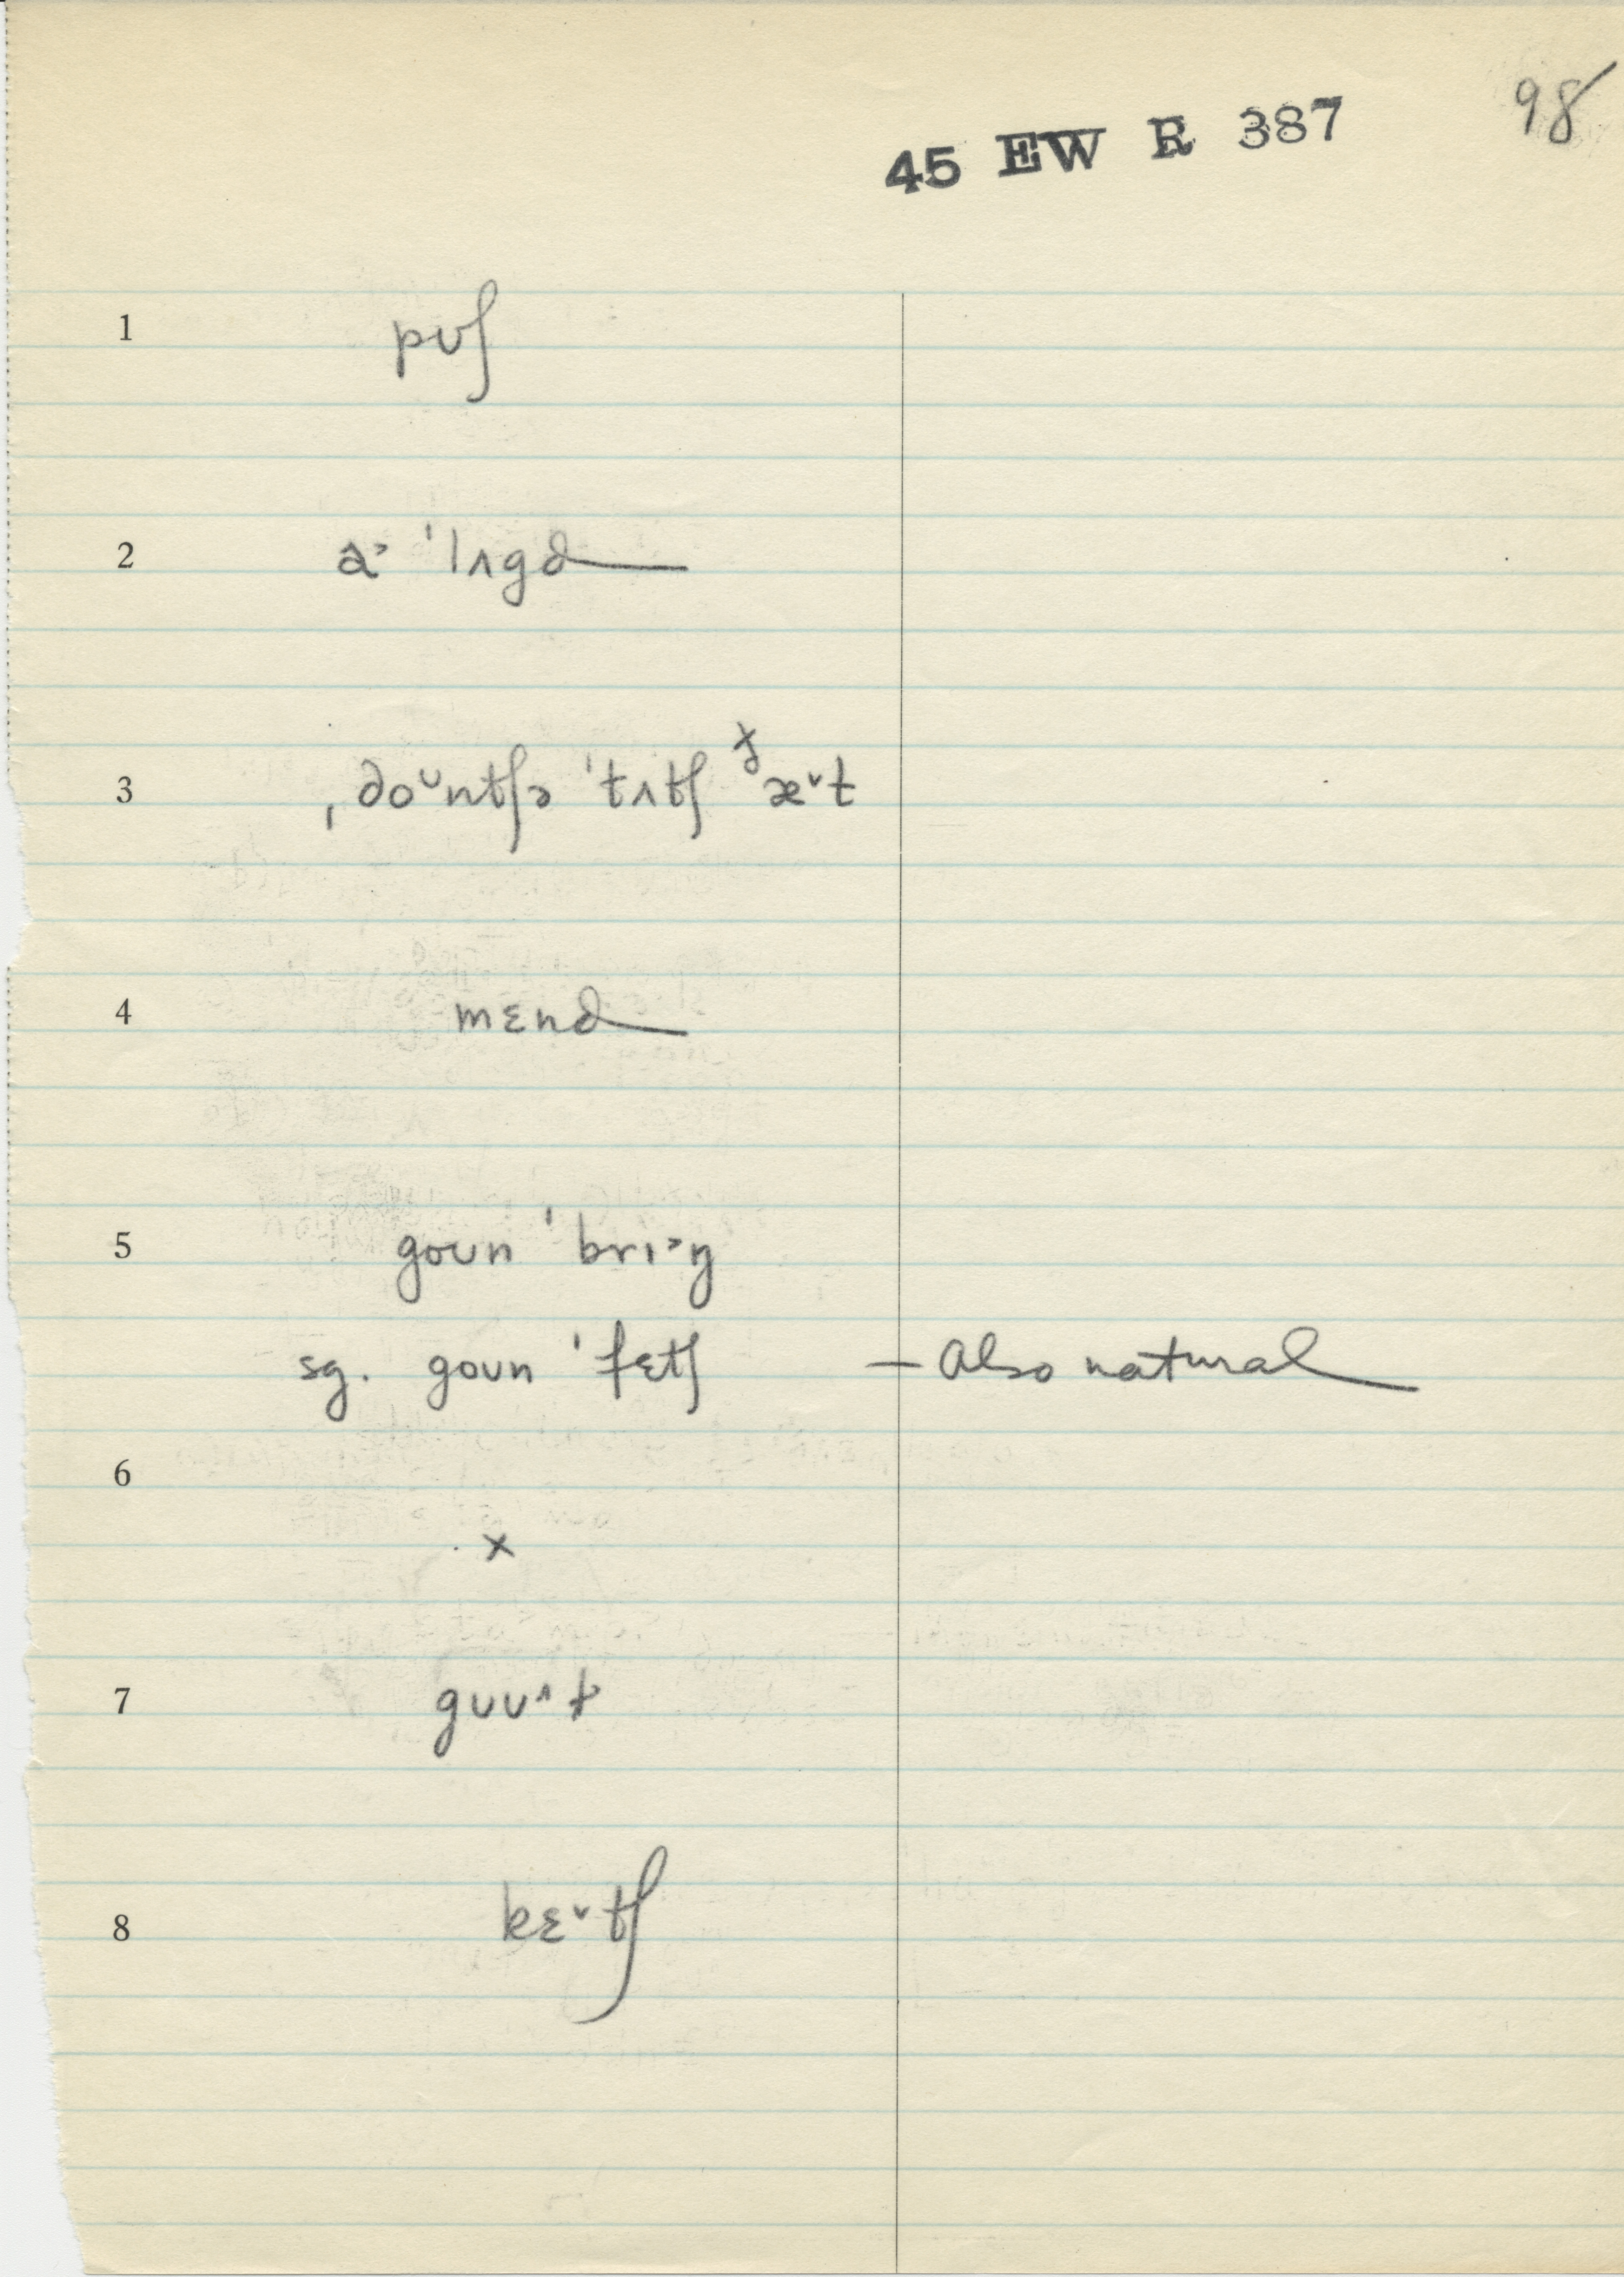 98
45 EW R 387
1 pʊʃ
2 a˃ ˈlʌgd
3 ˌdoᶷntʃə ˈtʌtʃ ðæ˅t
4 mɛnd
5 goʊn ˈbrɪ˃ŋ
sg. goʊn ˈfɛtʃ – Also natural
6
x
7 gʊʊ˄t
8 kɛ˅tʃ